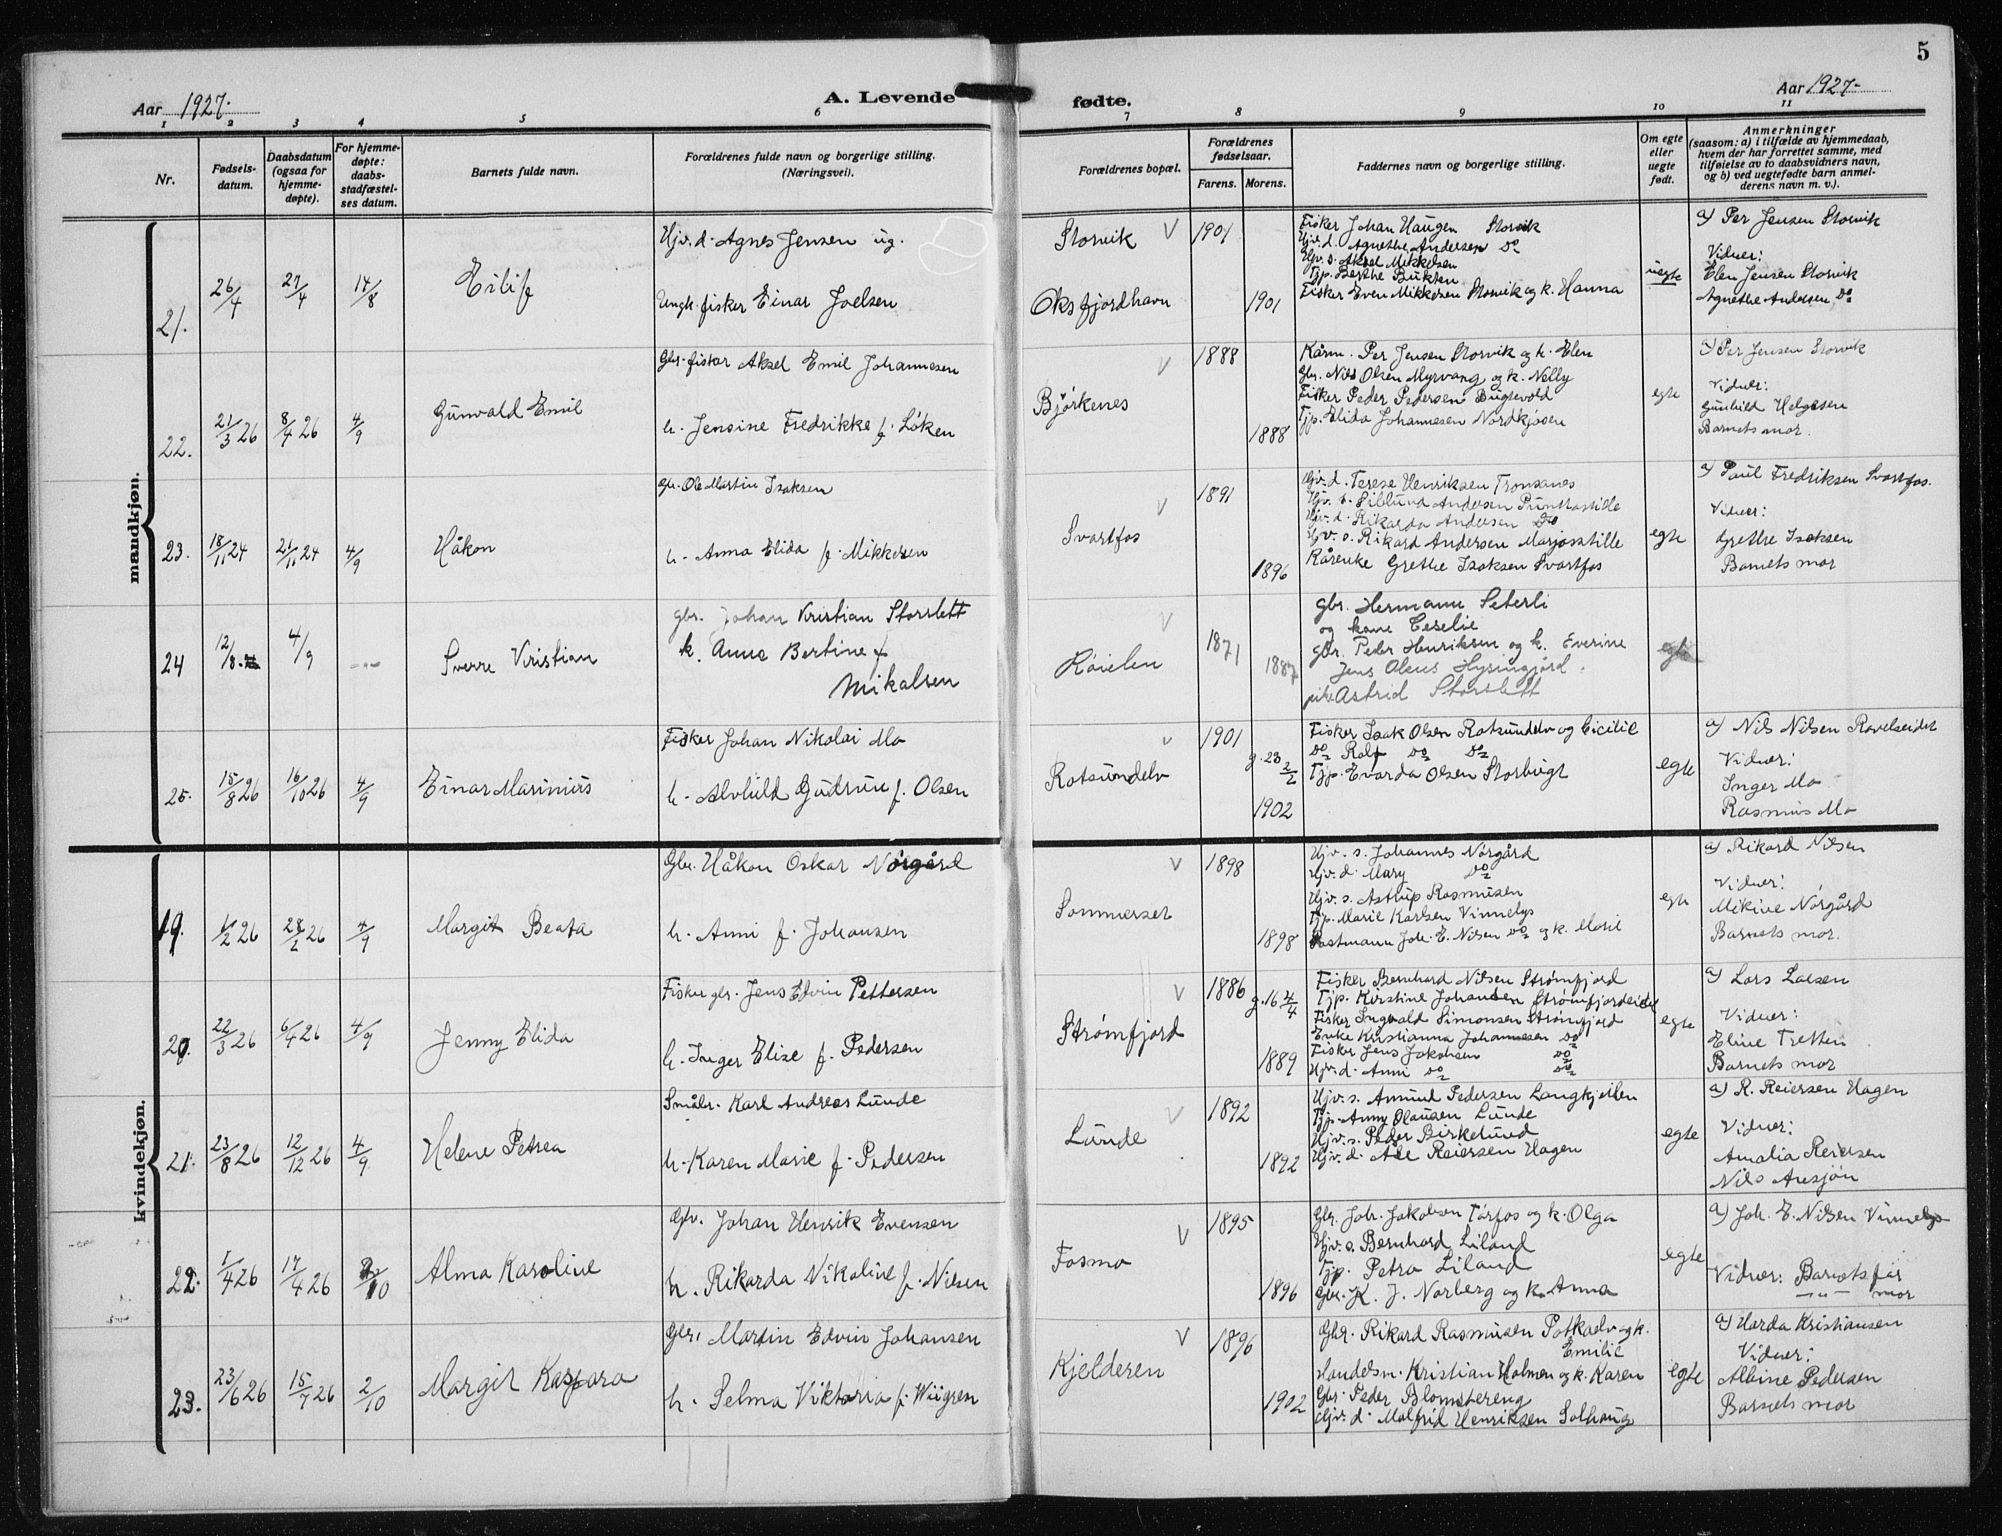 5
Aar 1927.
A. Levende fødte.
Aar 1927.
1 2 3 4 5 6 7 8 9 10 11
Nr.
Fødsels-
datum.
Daabsdatum
(ogsaa for
hjemme-
døpte).
For hjemme-
døpte:
daabs-
stadfæstel-
ses datum.
Barnets fulde navn.
Forældrenes fulde navn og borgerlige stilling.
(Næringsvei).
Forældrenes bopæl.
Forældrenes
fødselsaar.
Farens. Morens.
Faddernes navn og borgerlige stilling.
Om egte
eller
uegte
født.
Anmerkninger
(saasom: a) i tilfælde av hjemmedaab,
hvem der har forrettet samme, med
tilføielse av to daabsvidners navn,
og b) ved uegtefødte barn anmel-
derens navn m. v.).
mandkjøn.
21. 26/4 27/4 14/8 Eilif
Hjv. d. Agnes Jensen ug.
Ungk. fisker Einar Joelsen
Storvik V 1901
Oksfjordhavn 1901
Fisker Johan Haugen Storvik
Hjv. d. Agnethe Andersen Do
Hjv. s. Aksel Mikkelsen
Tjp. Berthe Bukten
Fisker Even Mikkelsen Storvik og k. Hanna
uegte
a) Per Jensen Storvik
Vidner:
Elen Jensen Storvik
Agnethe Andersen Do
22. 21/3 26 8/4 26 4/9 Gunvald Emil
Gbr. fisker Aksel Emil Johannesen
h. Jensine Fredrikke f. Løken
Bjørkenes V 1888
1888
Kårm. Per Jensen Storvik og h. Elen
Gbr. Nils Olsen Myrvang og k. Nelly
Fisker Peder Pedersen Bugtevold
Tjp. Elida Johannesen Nordkjosen
egte
a) Per Jensen Storvik
Vidner:
Gunhild Helgesen
Barnets mor.
23. 18/11 24 21/11 24 4/9 Håkon
Gbr. Ole Martin Isaksen
h. Anna Elida f. Mikkelsen
Svartfos V 1891
1896
Hjv. d. Terese Henriksen Tronsanes
Hjv. d. Rikarda Andersen Do
Hjv. s. Rikard Andersen
Kårenke Grethe Isaksen Svartfos
egte
a) Paul Fredriksen Svartfos.
Vidner:
Grethe Isaksen
Barnets mor
24 12/8 4/9 Sverre Kristian
gbr. Johan Kristian Storslett
k. Anna Bertine f
Mikalsen
V 1871 1887
gbr. Hermann Seterli
og kone Ceselie
gbr. Peder Henriksen og k. Everine
Jens Oleus
pike Astrid Storslett
egte
25. 15/8 26 16/10 26 4/9 Einar Marinius
Fisker Johan Nikolai Mo
h. Alvhild Gudrun f. Olsen
Rotsundelv V 1901
g. 23 2/2
1902
Fisker Isak Olsen Rotsundelv og Cicilie
Do Rolf Do Do
Tjp. Evarda Olsen Storbugt
egte
a) Nils Nilsen Ravelseidet
Vidner:
Inger Mo
Rasmus Mo
kvindekjøn.
19. 11/2 26 28/2 26 4/9 Margit Beata
Gbr. Håkon Oskar Nørgård
h. Anni f. Johansen
Sommerset V 1898
1898
Hjv. s. Johannes Nørgård
Hjv. d. Mary Do
Hjv. s. Astrup Rasmussen
Tjp. Marie Karlsen Vinnelys
Postmann Joh. E. Nilsen Do og k. Marie
egte
a) Rikard Nilsen
Vidner:
Mikine Nørgård
Barnets mor.
20. 22/3 26 6/4 26 4/9 Jenny Elida
Fisker gbr. Jens Edvin Pettersen
h. Inger Elise f. Pedersen
Strømfjord V 1886
g. 16 4/4
1889
Fisker Bernhard Nilsen Strømfjord
Tjp. Kirstine Johansen Strømfjordeidet
Fisker Ingvald Simonsen Strømfjord
Enke Kristianna Johannesen Do
Fisker Jens Jakobsen Do
Hjv. d. Anni Do Do
egte
a) Lars Larsen
Vidner:
Eline Tretten
Barnets mor
21. 23/8 26 12/12 26 4/9 Helene Petrea
Småbr. Karl Andreas Lunde
h. Karen Marie f. Pedersen
Lunde V 1892
1892
Hjv. s. Amund Pedersen Langkjellen
Tjp. Anny Olausen Lunde
Hjv. s. Peder Birkelund
Hjv. d. Ase Reiersen Hagen
egte
a) R. Reiersen Hagen
Vidner:
Amalia Reiersen
Nils Ansjøn
22. 1/4 26 17/4 26 2/10 Alma Karoline
Gbr. Johan Henrik Evensen
h. Rikarda Nikoline f. Nilsen
Fosmo V 1895
1896
Gbr. Joh. Jakobsen Tørfos og k. Olga
Hjv. s. Bernhard Liland
Tjp. Petra Liland
Gbr. K. J. Norberg og k. Anna
egte
a) Joh. E. Nilsen Vinnelys
Vidner: Barnets far
—"— mor
23. 23/6 26 15/7 26 2/10 Margit Kaspara
Gbr. Martin Edvin Johansen
h. Selma Viktoria f. Wiigren
Kjelderen V 1896
1902
Gbr. Rikard Rasmussen Potkaelv og k.
Emilie
Handelsm. Kristian Holmen og k. Karen
Gbr. Peder Blomstereng
Hjv. d. Malfrid Henriksen Solhaug
egte
a) Harda Kristiansen
Vidner:
Albine Pedersen
Barnets mor